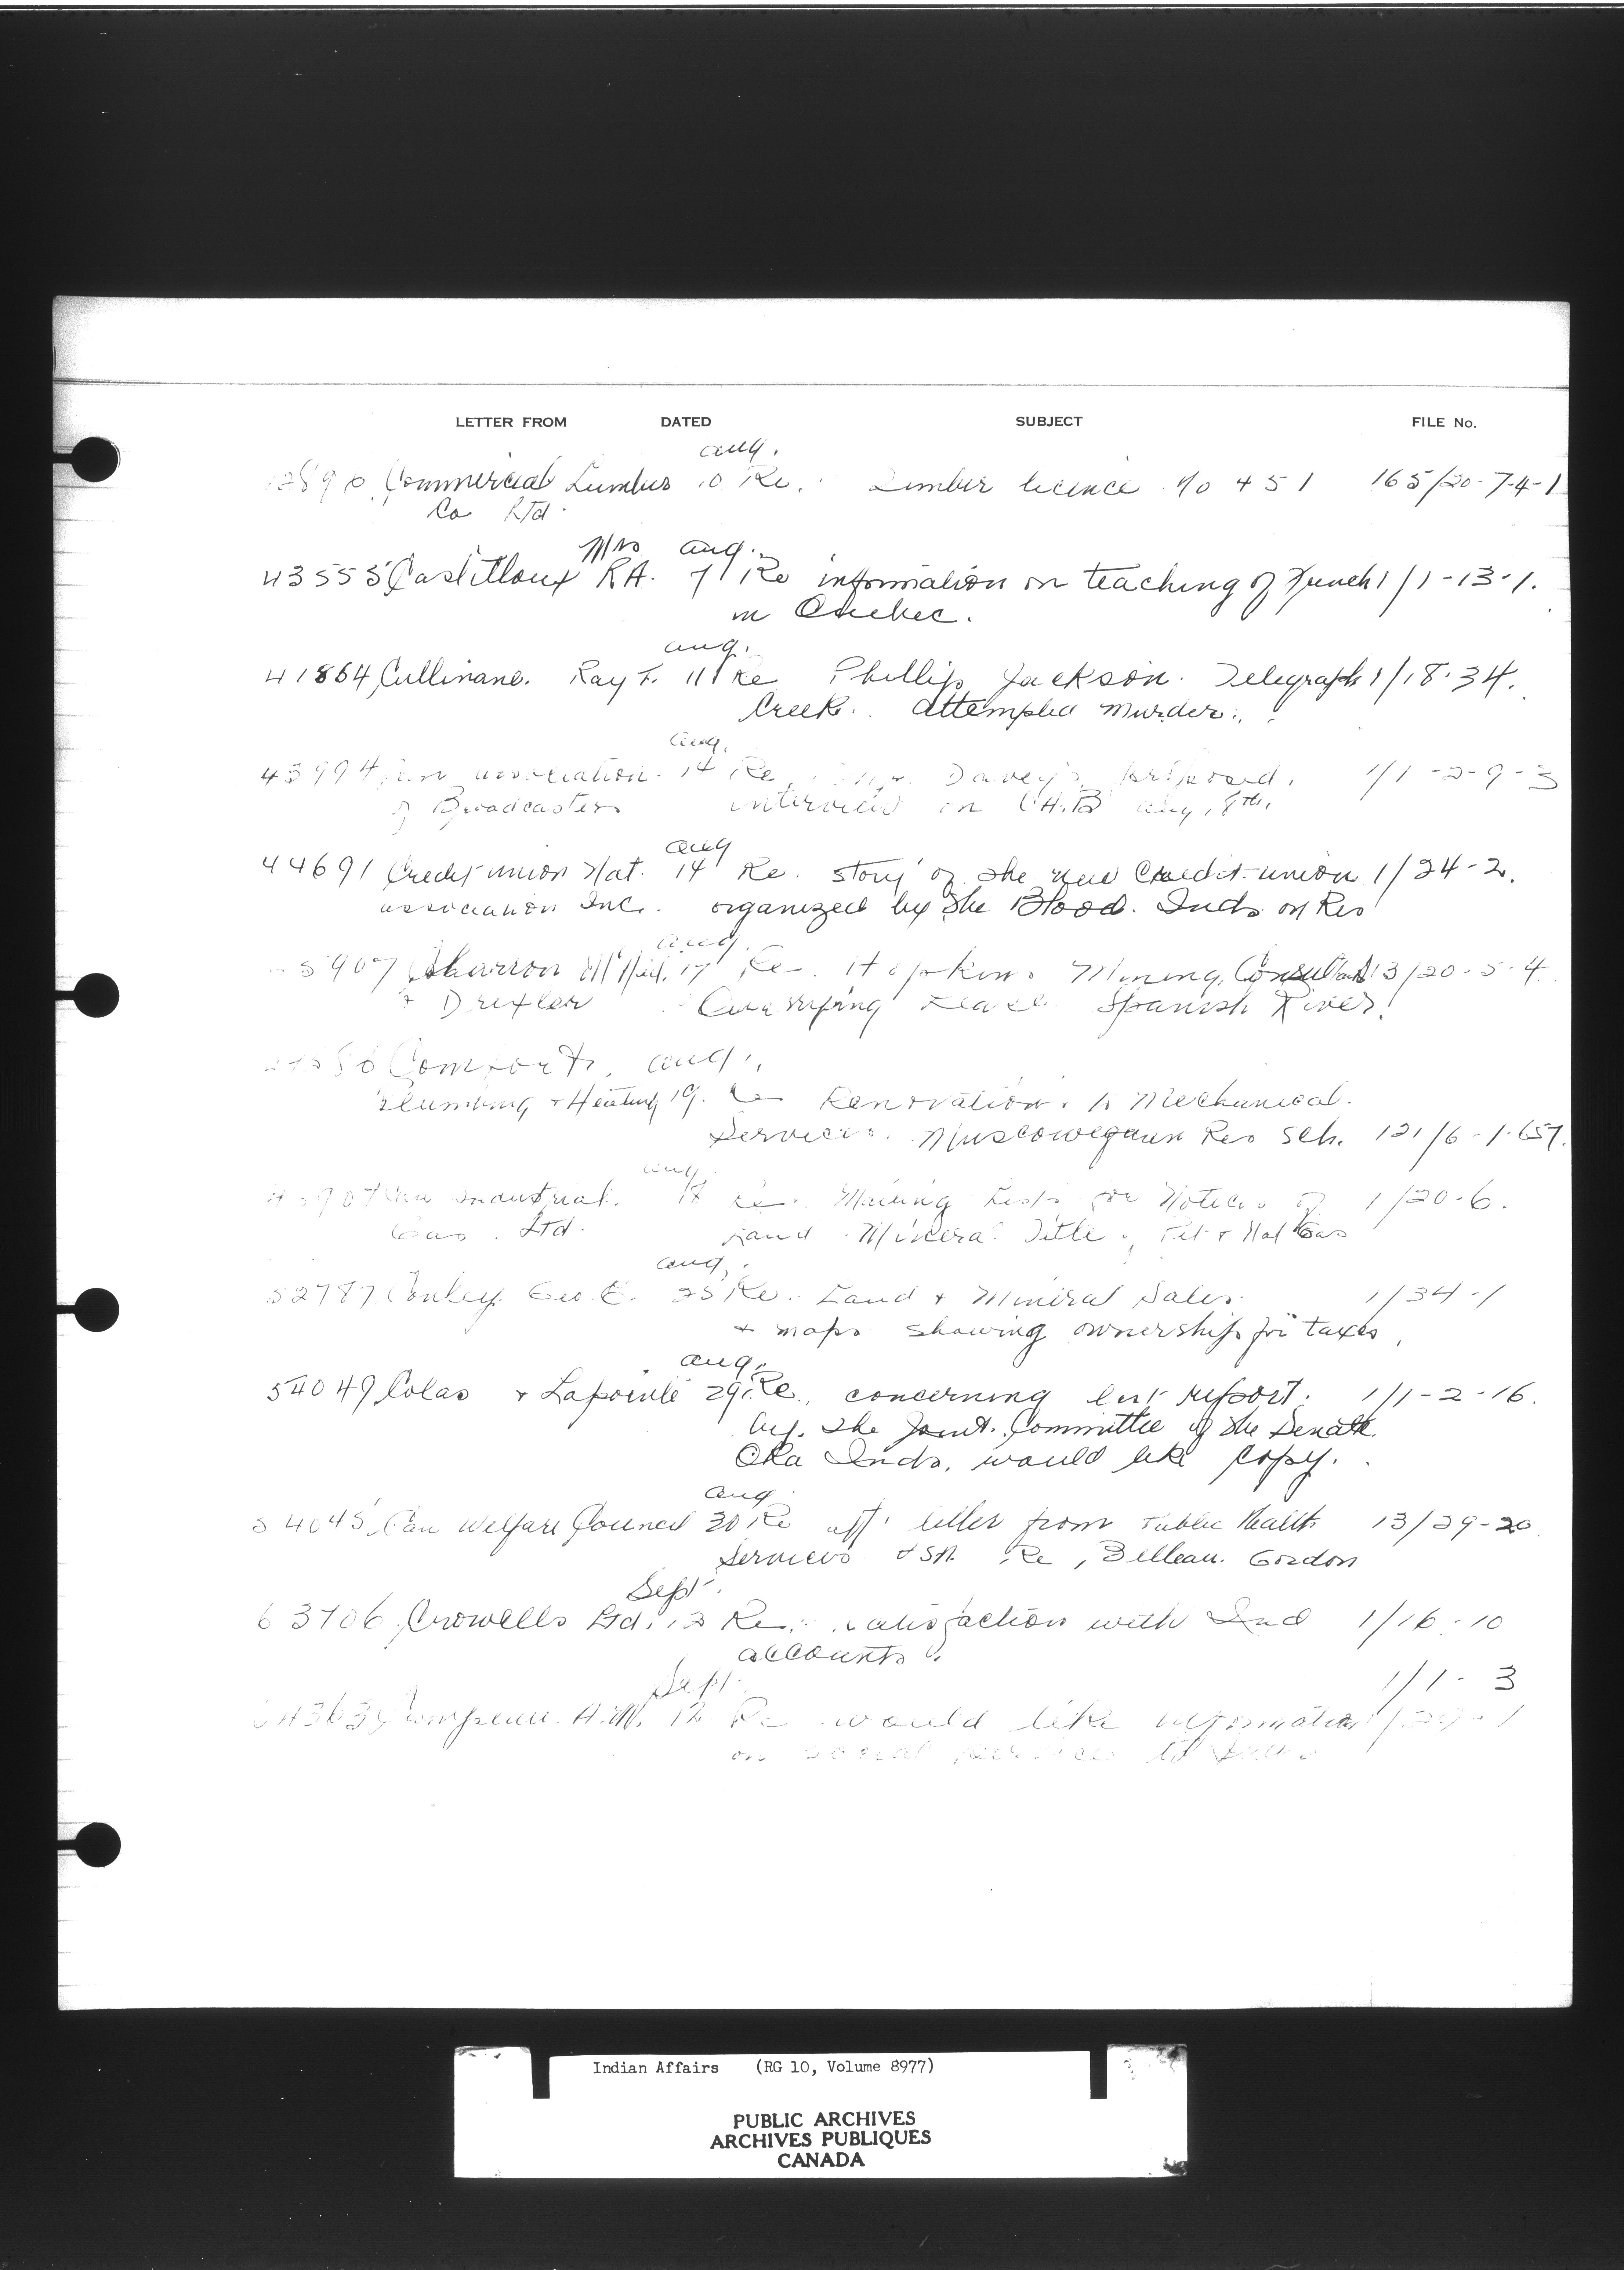 LETTER FROM DATED SUBJECT FILE No.
Aug.
Commercial Lumber 10 Re. Timber licence No 451 165/20-7-4-1
Co Ltd.
Mrs Aug.
43555 Castilloux R.A. 7 Re information on teaching of French 1/1-13-1.
in Quebec.
Aug.
41864 Cullinane. Ray F. 11 Re Phillip Jackson. Telegraph 1/18-34.
Creek. attempted murder.
Aug.
43994 Can association 14 Re Davey's proposed 1/1-2-9-3
of Broadcasters interview on Aug. 8th.
Aug
44691 Credit union Nat. 14 Re. story of the new Credit-union 1/24-2.
association Inc. organized by the Blood. Inds on Res
Aug.
5907 17 Re. Hopkins Mining Consultants 13/20-5-4.
& Drexler Quarrying Lease Spanish River.
Comforts Aug.
Plumbing & Heating 19. Re Renovations to Mechanical.
Services. Muscowequan Res Sch. 121/6-1-657.
Aug.
Can Industrial. 17 Re. Mailing Lists for Notices of 1/20-6.
Gas. Ltd. Land Mineral Title, Pet & Nat Gas
Aug.
52787 Conley. Geo. E. 25 Re. Land & Mineral Sales. 1/34-1
& maps showing ownership for taxes
Aug.
54049 Colas & Lapointe 29 Re. concerning last report. 1/1-2-16.
by. the Joint. Committee of the Senate
Oka Inds. would like copy.
Aug
54045 Can Welfare Council 30 Re att. letter from Public Health 13/29-20
Services Re, Belleau. Gordon
Sept.
63706 Crowells Ltd. 12 Re. satisfaction with Ind 1/16-10
accounts.
Sept. 1/1-3
Campeau. 12 Re would like information 1/29-1
on social services to Inds
Indian Affairs (RG 10, Volume 8977)
PUBLIC ARCHIVES
ARCHIVES PUBLIQUES
CANADA